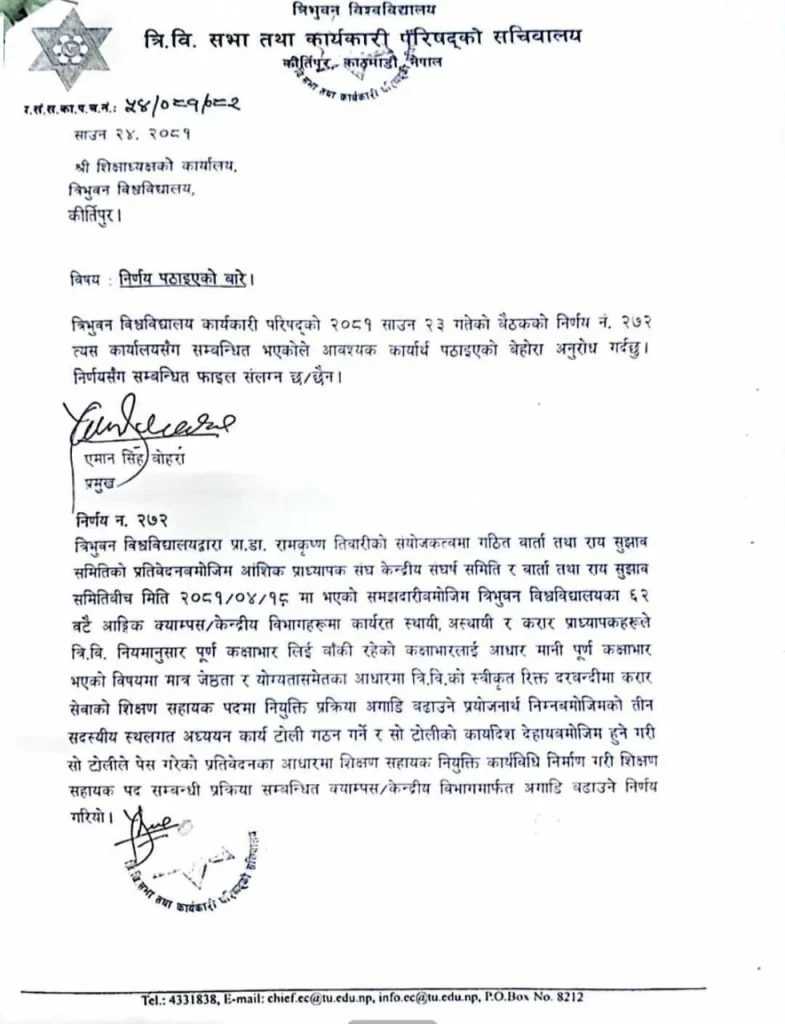 त्रिभुवन विश्वविद्यालय
त्रि.वि. सभा तथा कार्यकारी परिषद्को सचिवालय
कीर्तिपुर, काठमाडौं, नेपाल
सभा तथा कार्यकारी परिषद्को
र.सं.स.का.प.च.नं.: ५४/०८१/०८२
साउन २४, २०८१
श्री शिक्षाध्यक्षको कार्यालय,
त्रिभुवन विश्वविद्यालय,
कीर्तिपुर।
विषय : निर्णय पठाइएको बारे।
त्रिभुवन विश्वविद्यालय कार्यकारी परिषद्को २०८१ साउन २३ गतेको बैठकको निर्णय नं. २७२
त्यस कार्यालयसँग सम्बन्धित भएकोले आवश्यक कार्यार्थ पठाइएको बेहोरा अनुरोध गर्दछु।
निर्णयसँग सम्बन्धित फाइल संलग्न छ/छैन।
एमान सिंह बोहरा
प्रमुख
निर्णय न. २७२
त्रिभुवन विश्वविद्यालयद्वारा प्रा.डा. रामकृष्ण तिवारीको संयोजकत्वमा गठित वार्ता तथा राय सुझाव
समितिको प्रतिवेदनबमोजिम आंशिक प्राध्यापक संघ केन्द्रीय संघर्ष समिति र वार्ता तथा राय सुझाव
समितिबीच मिति २०८१/०४/१८ मा भएको समझदारीबमोजिम त्रिभुवन विश्वविद्यालयका ६२
वटै आङ्गिक क्याम्पस/केन्द्रीय विभागहरूमा कार्यरत स्थायी, अस्थायी र करार प्राध्यापकहरूले
त्रि.वि. नियमानुसार पूर्ण कक्षाभार लिई बाँकी रहेको कक्षाभारलाई आधार मानी पूर्ण कक्षाभार
भएको विषयमा मात्र जेष्ठता र योग्यतासमेतका आधारमा त्रि.वि.को स्वीकृत रिक्त दरबन्दीमा करार
सेवाको शिक्षण सहायक पदमा नियुक्ति प्रक्रिया अगाडि बढाउने प्रयोजनार्थ निम्नबमोजिमको तीन
सदस्यीय स्थलगत अध्ययन कार्य टोली गठन गर्ने र सो टोलीको कार्यादेश देहायबमोजिम हुने गरी
सो टोलीले पेस गरेको प्रतिवेदनका आधारमा शिक्षण सहायक नियुक्ति कार्यविधि निर्माण गरी शिक्षण
सहायक पद सम्बन्धी प्रक्रिया सम्बन्धित क्याम्पस/केन्द्रीय विभागमार्फत अगाडि बढाउने निर्णय
गरियो।
त्रि.वि. सभा तथा कार्यकारी परिषद्को सचिवालय
Tel.: 4331838, E-mail: chief.ec@tu.edu.np, info.ec@tu.edu.np, P.O.Box No. 8212